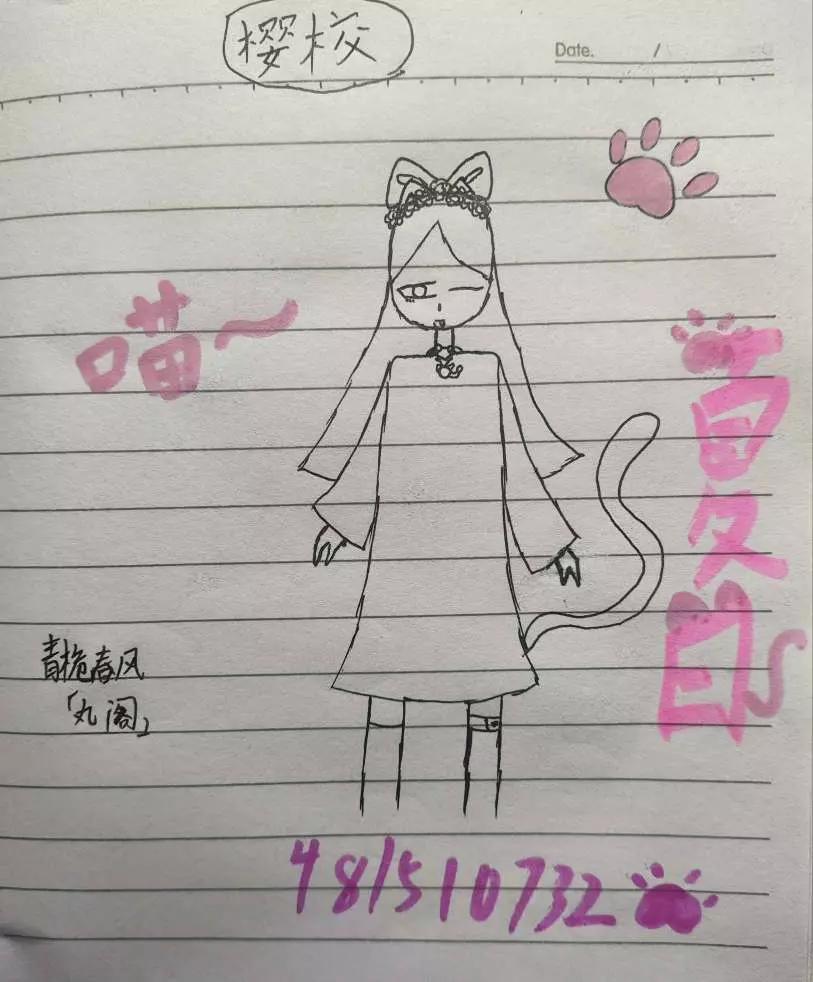 樱校
Date. /
喵~
夏日
青栀春风
「丸阁」
481510732